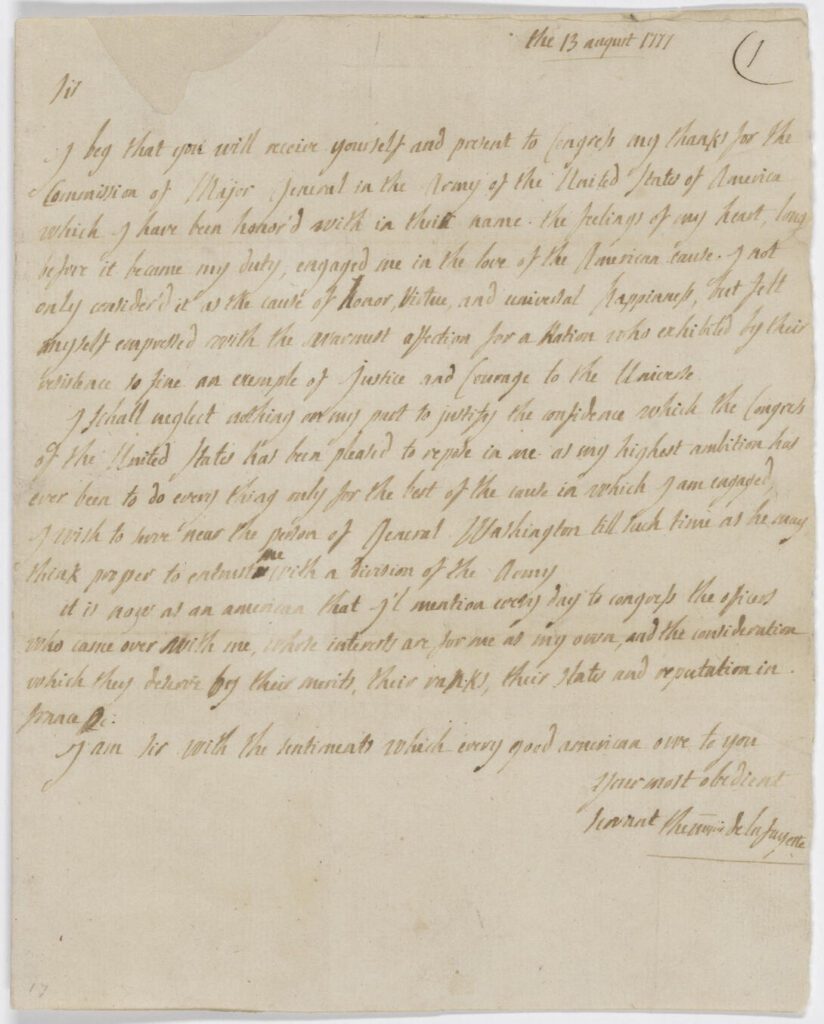 the 13 august 1777
1
Sir
I beg that you will receive yourself and present to Congress my thanks for the
Commission of Major General in the Army of the United States of America
which I have been honor'd with in their name. the feelings of my heart, long
before it became my duty, engaged me in the love of the American cause. I not
only consider'd it as the cause of honor, Virtue, and universal happinness, but felt
myself empressed with the warmest affection for a Nation who exhibited by their
resistence so fine an exemple of Justice and Courage to the Universe
I schall neglect nothing on my part to justify the confidence which the Congress
of the United States has been pleased to repose in me. as my highest ambition has
ever been to do every thing only for the best of the cause in which I am engaged,
I wish to serve near the person of General Washington till such time as he may
think proper to entrust me with a division of the Army
it is now as an american that I'l mention every day to congress the officers
who came over with me, whose interests are for me as my own, and the consideration
which they deserve by their merits, their ranks, their states and reputation in
france &c.
I am sir with the sentiments which every good american owe to you
Your most obedient
servant the mquis de lafayette
17